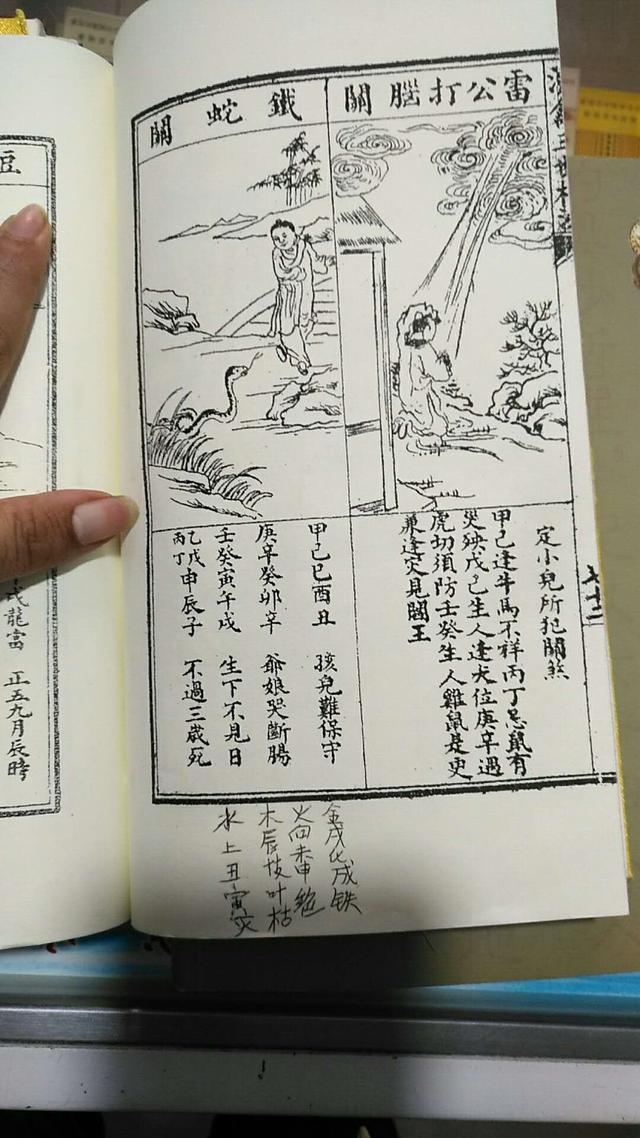 雷公打腦關
定小兒所犯關煞
甲己逢牛馬不祥丙丁忌鼠有
災殃戊己生人逢犬位庚辛遇
虎切須防壬癸生人雞鼠是更
兼逢灾見閻王
鐵蛇關
甲己巳酉丑 孩兒難保守
庚辛癸卯辛 爺娘哭斷腸
壬癸寅午戌 生下不見日
乙戊申辰子 不過三歲死
丙丁
金戌化成铁
火向未申絕
木辰枝叶枯
水上丑寅灾
七十二
臣
戌龍富 正五九月辰時